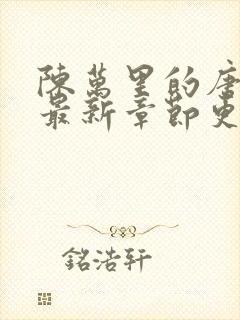 陳萬里的唐
最新章節更
銘浩轩